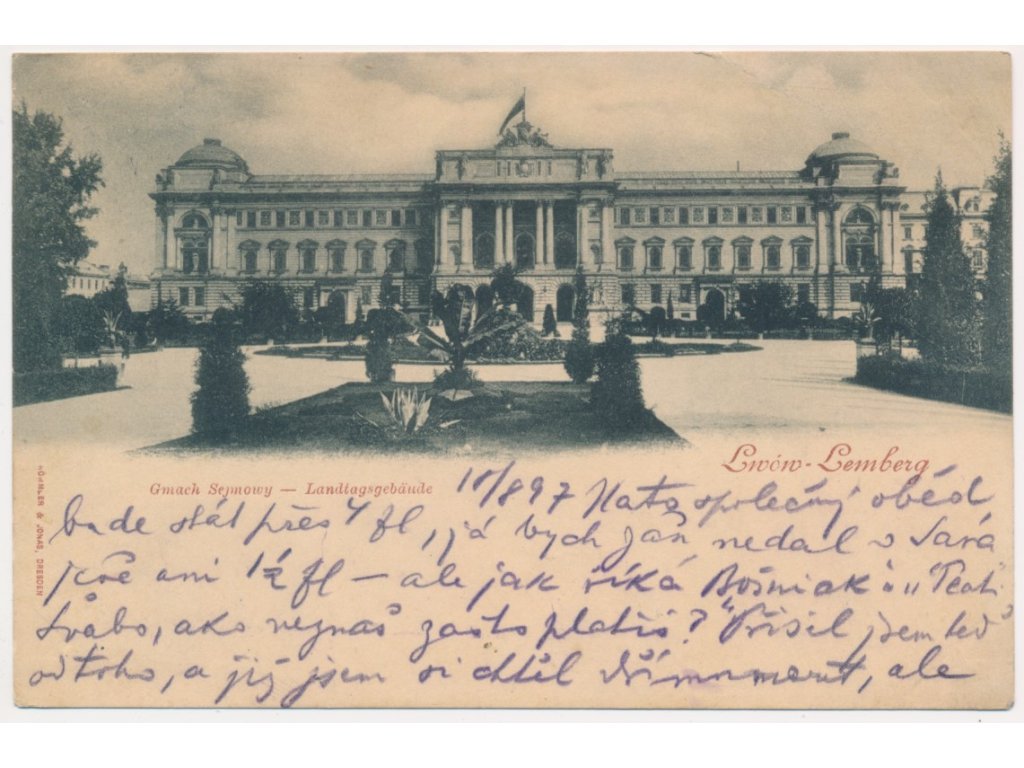 Lwów-Lemberg
Gmach Sejmowy — Landtagsgebäude
RÖMMLER & JONAS, DRESDEN
10/897 Na to společný oběd
bude stát přes 4 fl, já bych žaň nedal v
ani 1½ fl — ale jak říká Bošniak:
Švabo, ako neznaš zašto platiš?" Přišel jsem teď
od toho, a já jsem si chtěl, ale